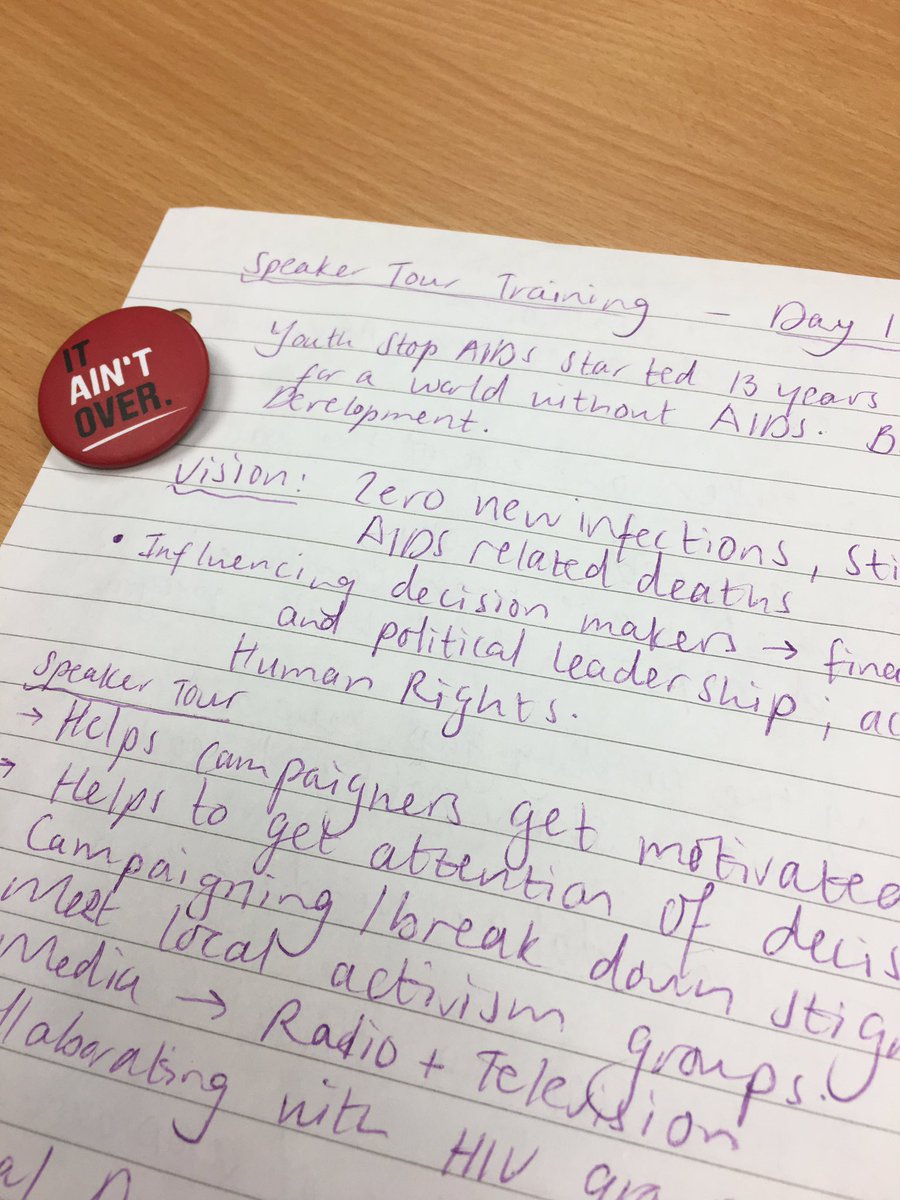 IT
AIN'T
OVER.
Speaker Tour Training - Day 1
Youth Stop AIDS started 13 years
for a world without AIDS. B
Development.
Vision: Zero new infections, Sti
AIDS related deaths
• Influencing decision makers → fina
and political leadership; ac
Human Rights.
Speaker Tour
→ Helps campaigners get motivated
→ Helps to get attention of decis
Campaigning / break down stigm
Meet local activism groups.
Media → Radio + Television
llaborating with HIV